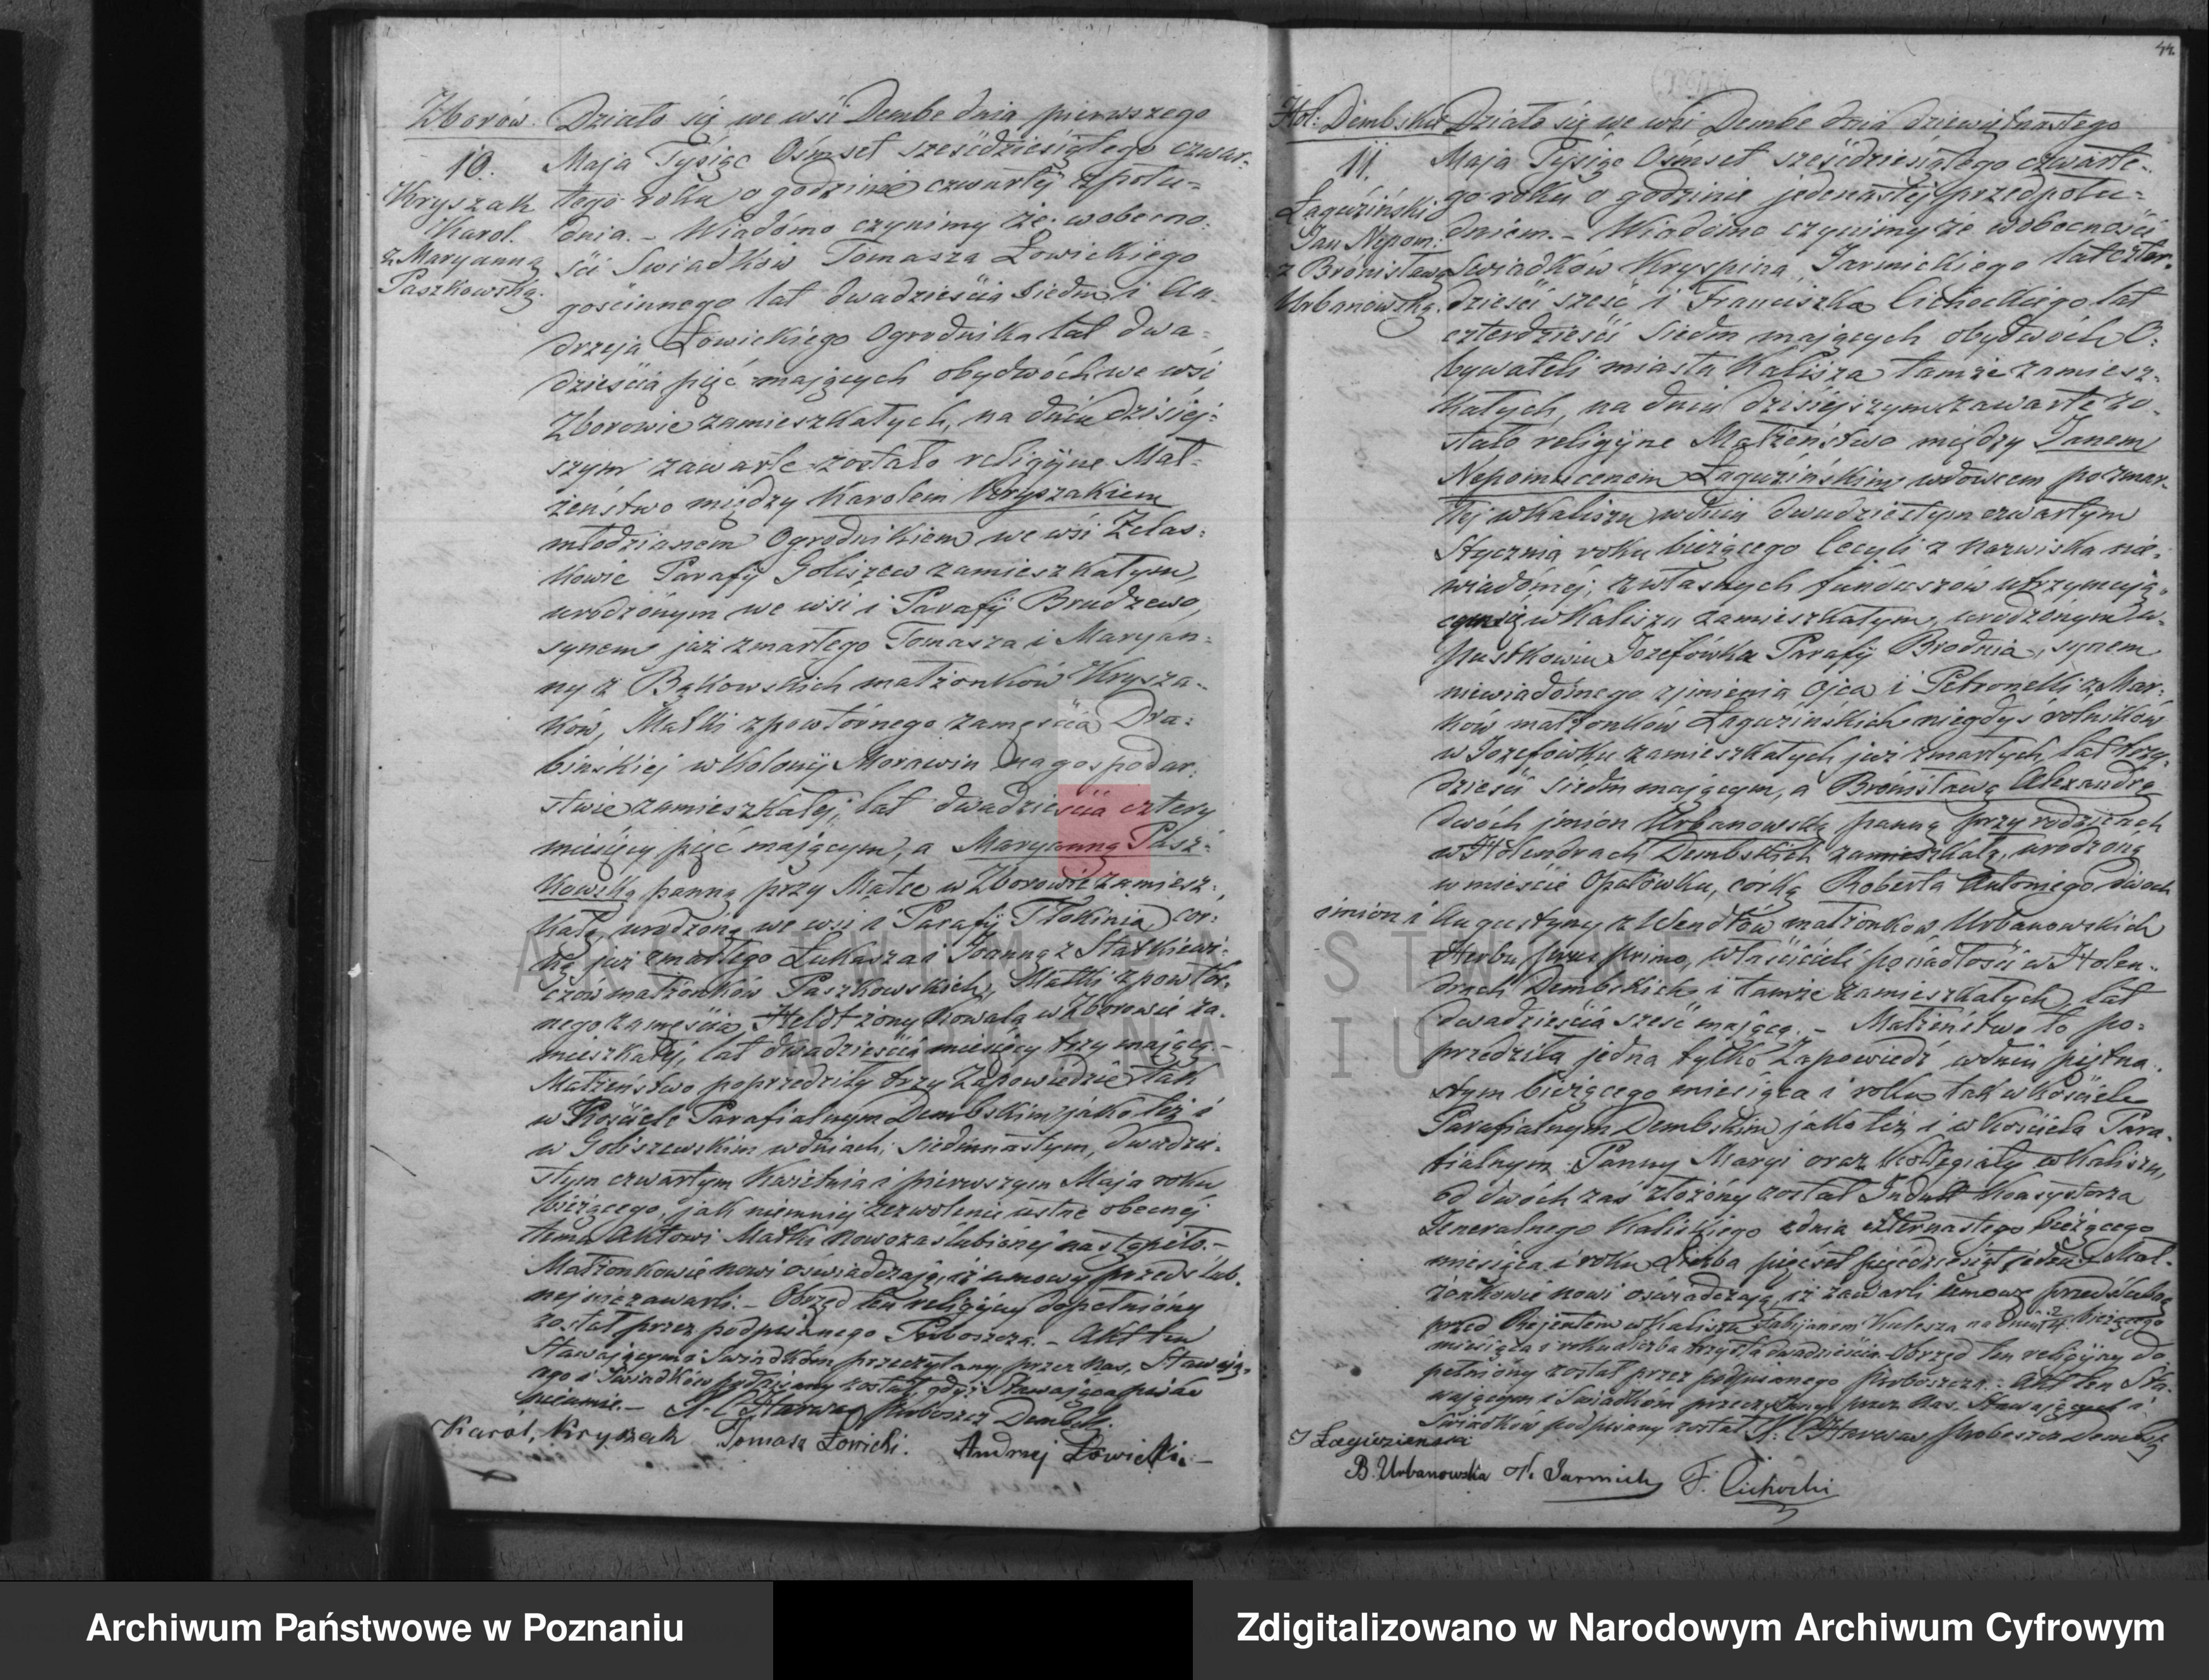 44.
Zborów.
10.
Kryszak
Karol.
z Maryanną
Paszkowską.
Działo się we wsi Dembe dnia pierwszego
Maja Tysiąc Ośmset sześćdziesiątego czwar-
tego roku o godzinie czwartéj z połu-
dnia. – Wiadomo czynimy że w obecno-
ści Swiadków Tomasza Łowickiego
gościnnego lat dwadzieścia siedm i An-
drzeja Łowickiego Ogrodnika lat dwa-
dzieścia pięć mających obydwóch we wsi
Zborowie zamieszkałych, na dniu dzisiej-
szym zawarte zostało religijne Mał-
żeństwo między Karolem Kryszakiem
młodzianem Ogrodnikiem we wsi Żelas-
kowie Parafij Goliszew zamieszkałym,
urodzonym we wsi i Parafij Brudzewo,
synem już zmarłego Tomasza i Maryan-
ny z Bąkowskich małżonków Krysza-
ków, Matki z powtórnego zamęścia Dra-
bińskiej w Kolonij Morawin na gospodar-
stwie zamieszkałej, lat dwadzieścia cztery
miesięcy pięć mającym, a Maryanną Pasz-
kowską panną przy Matce w Zborowie zamiesz-
kałą urodzoną we wsi i Parafij Tłokinia, cór-
ką już zmarłego Łukasza i Joanny z Statkiewi-
czów małżonków Paszkowskich, Matki z powtór-
nego zamęścia, Heldt żony Kowala w Zborowie za-
mieszkałej, lat dwadzieścia miesięcy trzy mającą. –
Małżeństwo poprzedziły trzy Zapowiedzie tak
w Kościele Parafialnym Dembskim jako też i
w Goliszewskim w dniach: siedmnastym, dwudzie-
stym czwartym Kwietnia i pierwszym Maja roku
bieżącego, jak niemniej zezwolenie ustne obecnéj
temu Aktowi Matki nowozaślubionéj nastąpiło. –
Małżonkowie nowi oświadczają, iż umowy przedślub-
nej nie zawarli. – Obrzęd ten religijny dopełniony
został przez podpisanego Proboszcza. – Akt ten
Stawającym i Swiadkom przeczytany, przez Nas, Stawają-
cego i Świadków podpisany został, gdyż Stawająca pisać
nieumie. – Proboszcz Dembski.
Karól, Kryszak Tomasz Łowicki. Andrzej Łowicki. –
Hol: Dembskie
11.
Łaguziński
Jan Nepom:
z Bronisławą
Urbanowską.
Działo się we wsi Dembe dnia dziewiętnastego
Maja Tysiąc Ośmset sześćdziesiątego czwarte-
go roku o godzinie jedenastéj przed połu-
dniem. – Wiadomo czynimy że w obecności
Swiadków Kryspina Jarmickiego lat czter-
dzieści sześć i Franciszka Cichockiego lat
czterdzieści siedm mających obydwóch O-
bywateli miasta Kalisza tamże zamiesz-
kałych, na dniu dzisiejszym zawarte zo-
stało religijne Małżeństwo między Janem
Nepomucenem Łaguzińskim, wdowcem po zmar-
łej w Kaliszu w dniu dwudziestym czwartym
Stycznia roku bieżącego Cecylii z nazwiska nie-
wiadomej; z własnych funduszów utrzymują-
cym się w Kaliszu zamieszkałym, urodzonym w
Pustkowiu Jozefówka Parafij Brodnia, synem
niewiadomego z imienia Ojca i Petronelli z Mar-
ków małżonków Łaguzińskich niegdyś rolników
w Jozefówku zamieszkałych już zmarłych, lat trzy-
dzieści siedm mającym, a Bronisławą Alexandrą
dwóch imion Urbanowską panną przy rodzicach
w Holendrach Dembskich zamieszkałą, urodzoną
w mieście Opatówku, córką Roberta Antoniego dwóch
imion i Augustyny z Wendtów małżonków Urbanowskich
Herbu Prus Primo, właścicieli posiadłości w Holen-
drach Dembskich i tamże zamieszkałych, lat
dwadzieścia sześć mającą. – Małżeństwo to po-
przedziła jedna tylko Zapowiedź w dniu piętna-
stym bieżącego miesiąca i roku tak w Kościele
Parafialnym Dembskim jako też i w Kościele Para-
fialnym Panny Maryi oraz Kollegiaty w Kaliszu,
od dwóch zaś złożony został Indult Konsystorza
Jeneralnego Kaliskiego z dnia czternastego bieżącego
miesiąca i roku Liczba pięćset pięćdziesiąt jeden. Mał-
żonkowie nowi oświadczają, iż zawarli umowę przedślubną
przed Rejentem w Kaliszu Fabijanem Kulesza na dniu bieżącego
miesiąca i roku liczba trzysta dwadzieścia. Obrzęd ten religijny do-
pełniony został przez podpisanego Proboszcza. – Akt ten Sta-
wającym i Swiadkom przeczytany, przez Nas, Stawających i
Swiadków podpisany został. Proboszcz Dembski
J Łaguzienski
B. Urbanowska K. Jarmicki F. Cichocki
ARCHIWUM PAŃSTWOWE
W POZNANIU
Archiwum Państwowe w Poznaniu
Zdigitalizowano w Narodowym Archiwum Cyfrowym